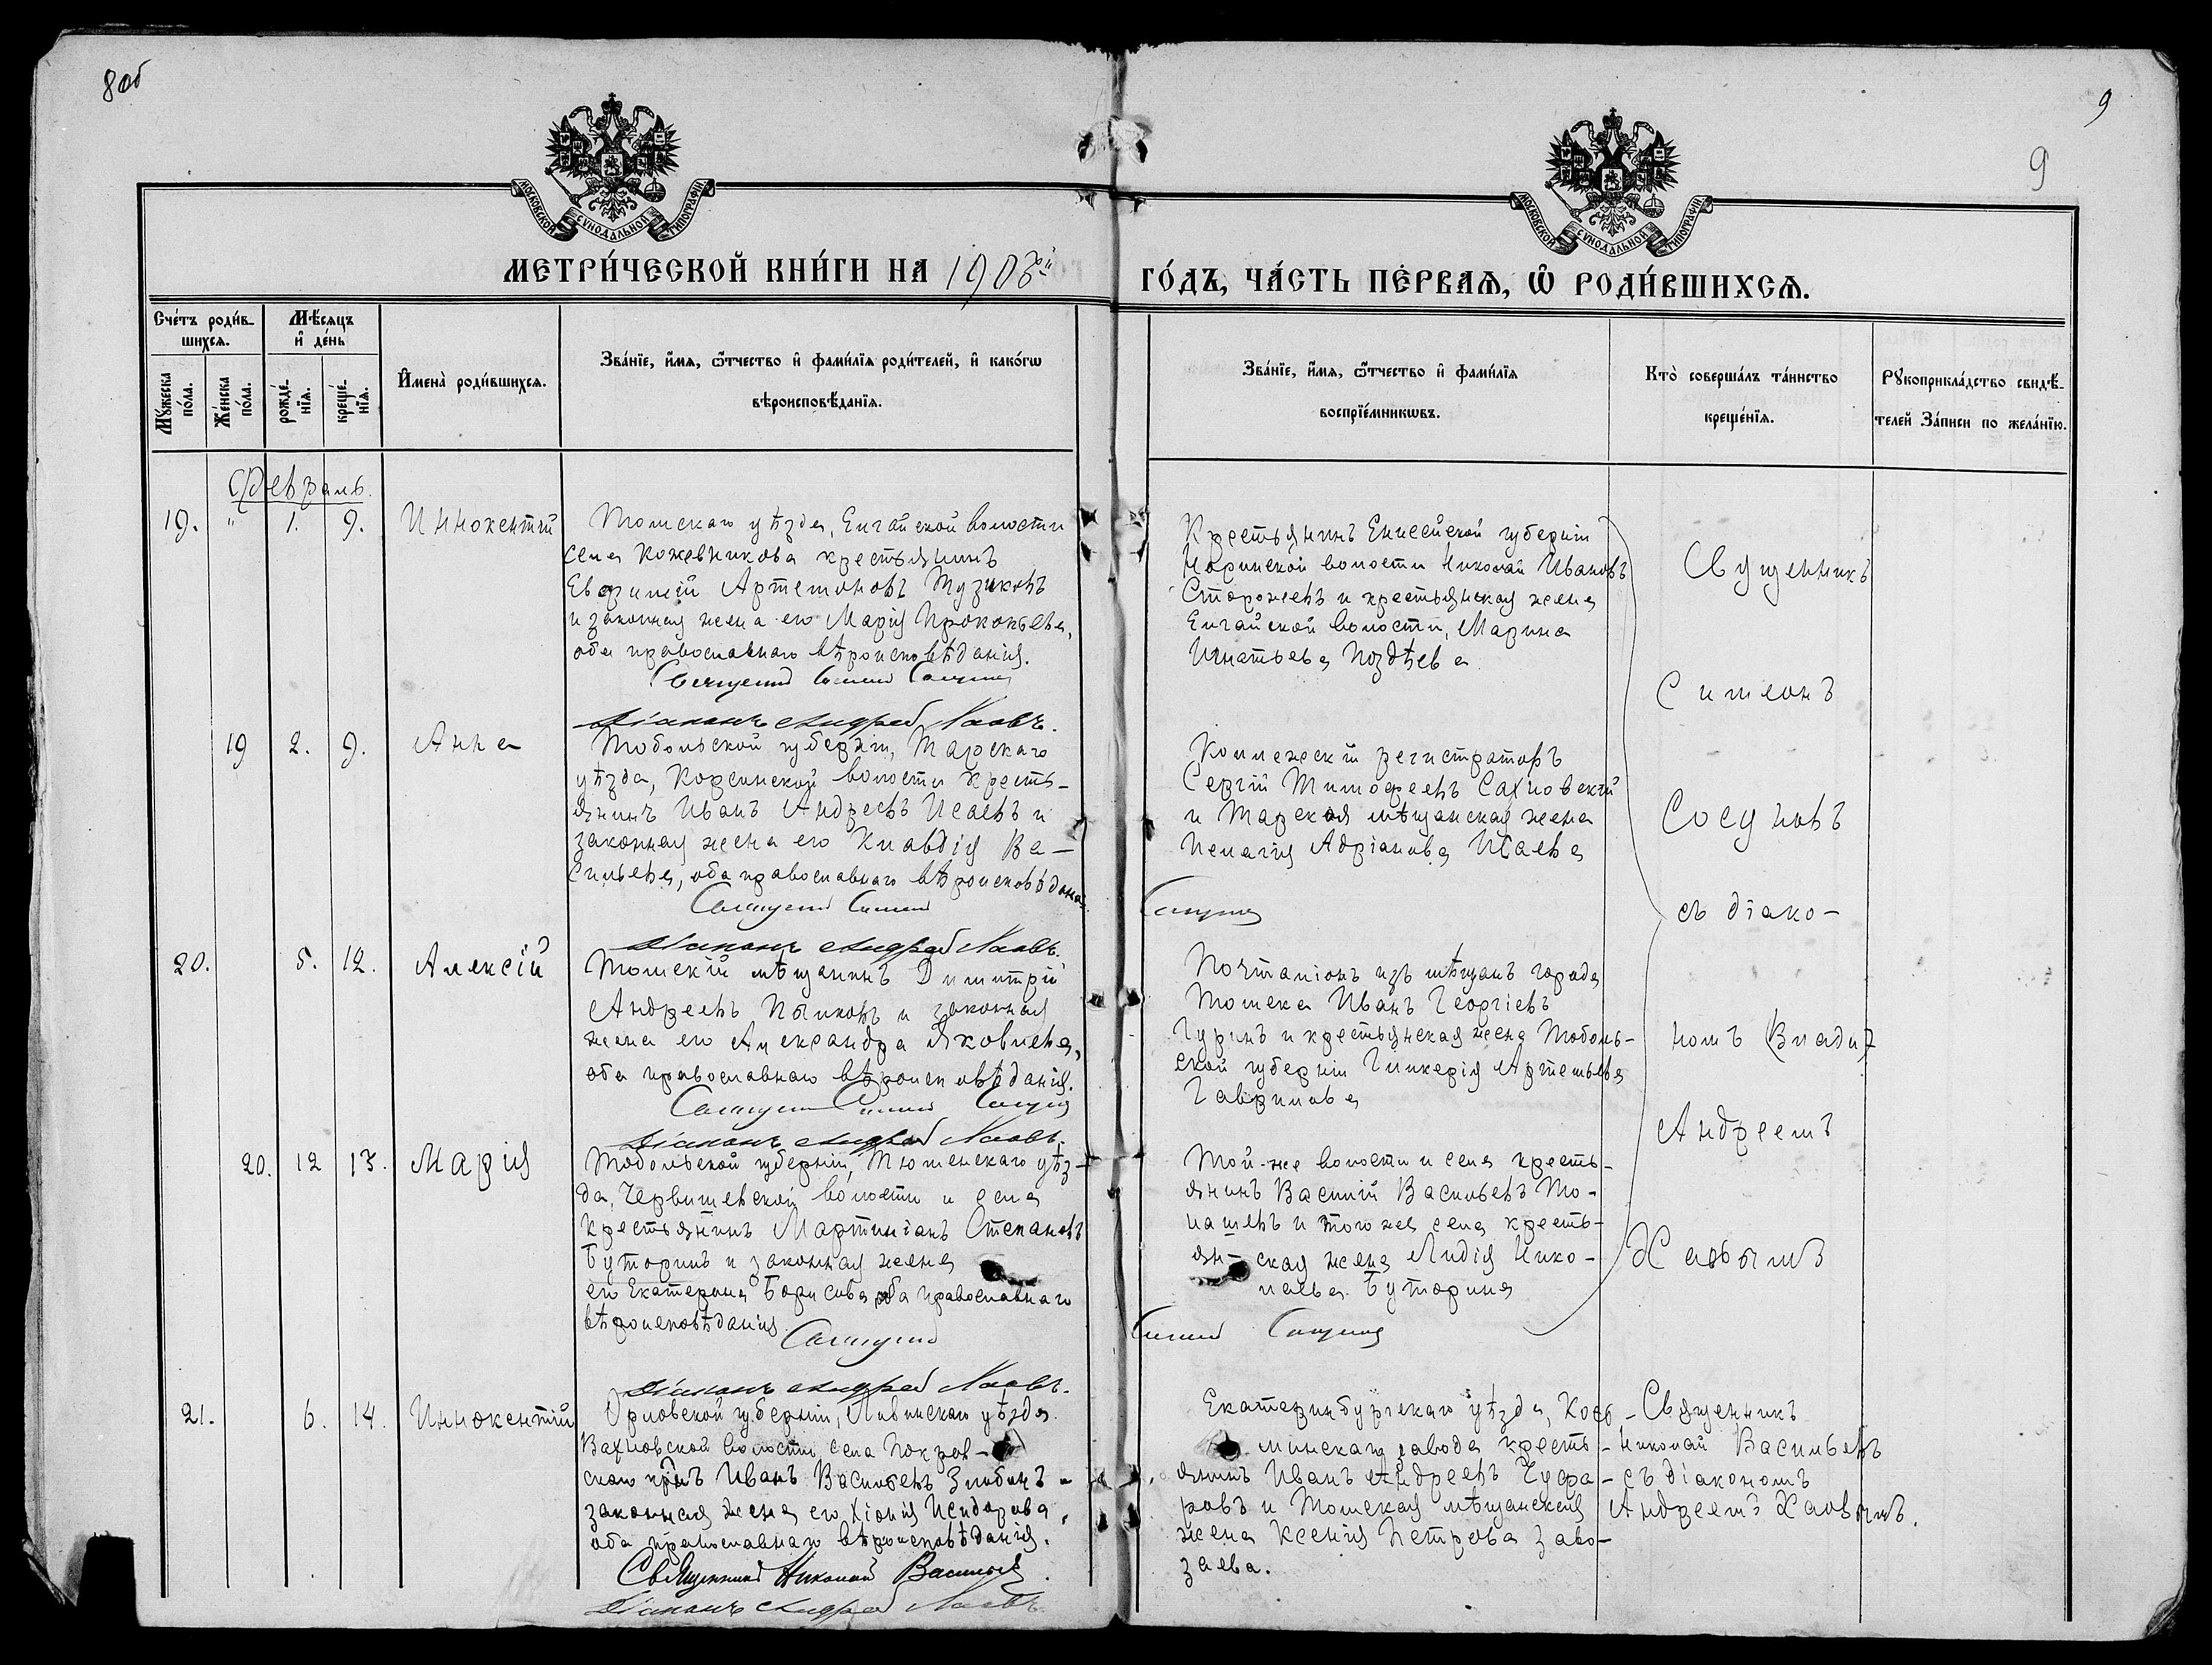 8об
9
9
МОСКОВСКОЙ СѴНОДАЛЬНОЙ ТИПОГРАФІИ
МОСКОВСКОЙ СѴНОДАЛЬНОЙ ТИПОГРАФІИ
МЕТРИ́ЧЕСКОЙ КНИ́ГИ НА 1908й ГО́ДЪ, ЧА́СТЬ ПЕ́РВАЯ, Ѡ҆ РОДИ́ВШИХСѦ.
Сче́тъ роди́в-
шихсѧ.
Мѣ́сяцъ
и҆ де́нь
Мꙋ́жеска
по́ла.
Же́нска
по́ла.
рожде́-
нїѧ.
креще́-
нїѧ.
И҆мена̀ роди́вшихсѧ.
Зва́нїе, и҆́мѧ, ѻ҆́тчество и҆ фами́лїѧ роди́телей, и҆ како́гѡ
вѣроисповѣ́данїѧ.
Зва́нїе, и҆́мѧ, ѻ҆́тчество и҆ фами́лїѧ
воспрїе́мникѡвъ.
Кто̀ соверша́лъ та́инство
креще́нїѧ.
Рꙋкоприкла́дство свидѣ́-
телей За́писи по жела́нїю.
Февраль.
19. " 1. 9. Иннокентій
Томскаго уѣзда, Елгайской волости
села Кожевникова крестьянинъ
Евфимій Артемоновъ Тузиковъ
и законная жена его Марія Прокопьева,
оба православнаго вѣроисповѣданія.
Священникъ Симеонъ Сосуновъ
Діаконъ Андрей Хаовъ.
Крестьянинъ Енисейской губерніи
волости Николай Ивановъ
Стороженъ и крестьянская жена
Елгайской волости, Марина
Игнатьева Поздѣева
Священникъ
Симеонъ
Сосуновъ
съ діако-
номъ (Влади)
Андреемъ
Хаовымъ
19 2. 9. Анна
Тобольской губерніи, Тарскаго
уѣзда, Корсинской волости кресть-
янинъ Иванъ Андреевъ Исаевъ и
законная жена его Клавдія Ва-
сильева, оба православнаго вѣроисповѣданія.
Священникъ Симеонъ Сосуновъ
Діаконъ Андрей Хаовъ.
Коллежскій регистраторъ
Сергій Тимофеевъ Сахновскій
и Тарская мѣщанская жена
Пелагія Адріанова Исаева
20. 5. 12. Алексій
Томскій мѣщанинъ Димитрій
Андреевъ Пыиковъ и законная
жена его Александра Яковлева,
оба православнаго вѣроисповѣданія.
Священникъ Симеонъ Сосуновъ
Діаконъ Андрей Хаовъ.
Почталіонъ изъ мѣщанъ города
Томска Иванъ Георгіевъ
Гуринъ и крестьянская жена Тоболь-
ской губерніи Гликерія Артемьева
Гаврилова
20. 12 13. Марія
Тобольской губерніи, Тюменскаго уѣз-
да, Червишевской волости и села
крестьянинъ Мартиніанъ Степановъ
Буторинъ и законная жена
его Екатерина Борисова оба православнаго
вѣроисповѣданія.
Священникъ Симеонъ Сосуновъ
Діаконъ Андрей Хаовъ.
Той-же волости и села кресть-
янинъ Василій Васильевъ То-
и того же села кресть-
ян-ская жена Лидія Нико-
лаева Буторина
21. 6. 14. Иннокентій
Орловской губерніи, Ливенскаго уѣзда
Вахновской волости села Покров-
скаго кр-нъ Иванъ Васильевъ Злобинъ и
законная жена его Хіонія Исидорова,
оба православнаго вѣроисповѣданія.
Священникъ Николай Васильевъ
Діаконъ Андрей Хаовъ
Екатеринбургскаго уѣзда,
завода кресть-
янинъ Иванъ Андреевъ Чуфа-
ровъ и Томская мѣщанская
жена Ксенія Петрова Заво-
заева.
Священникъ
Николай Васильевъ
съ діакономъ
Андреемъ Хаовымъ.